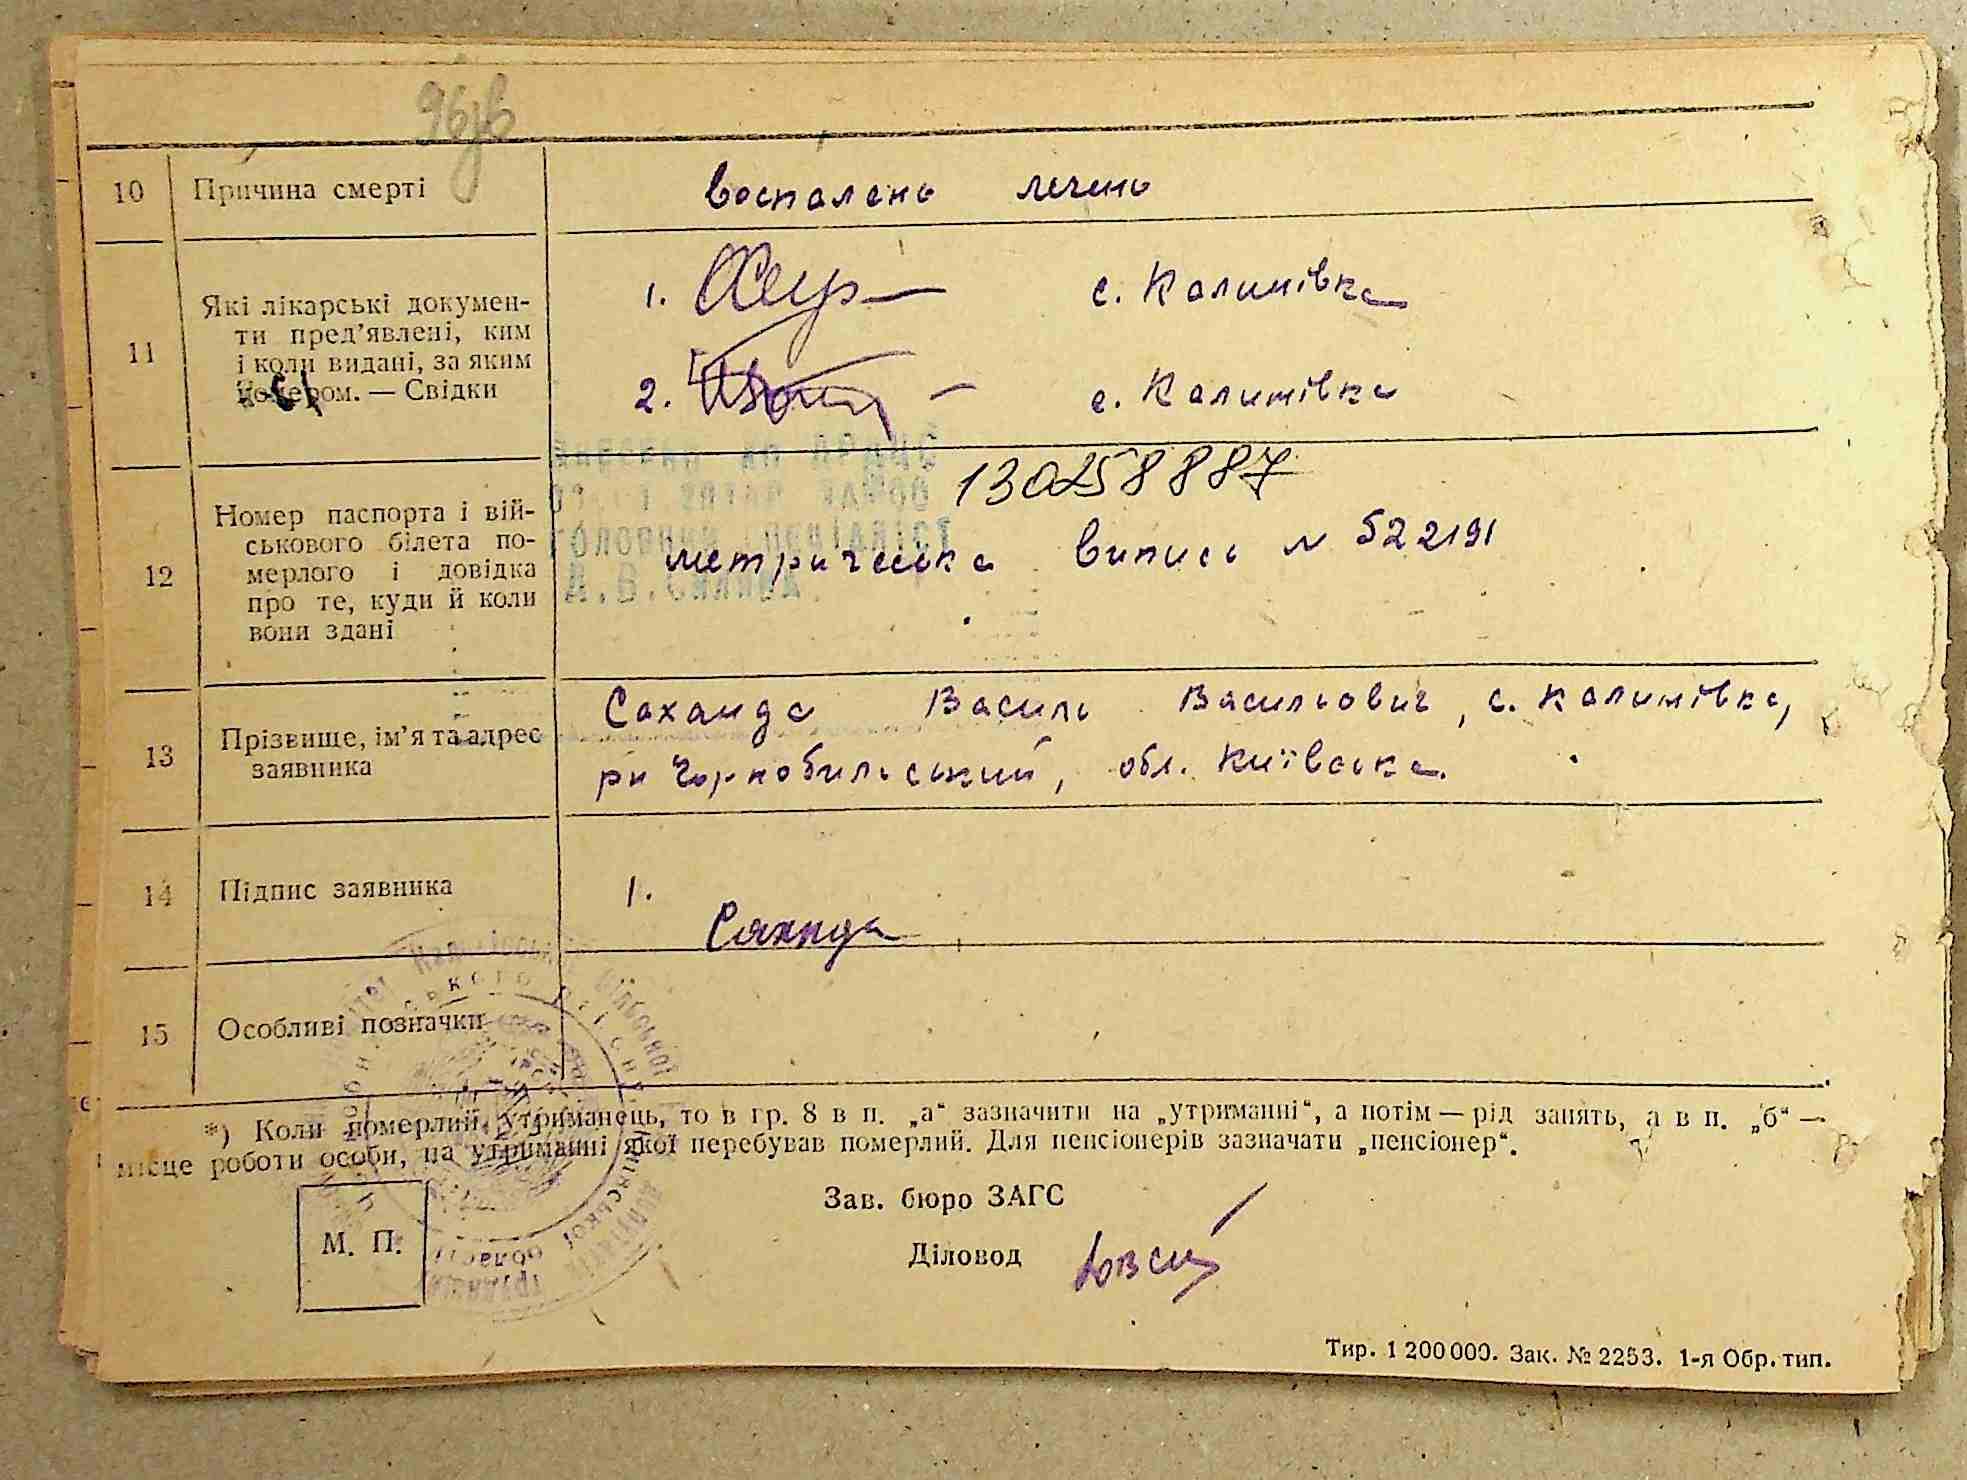 96зв
10 Причина смерті воспалена легень
11 Які лікарські докумен-
ти пред'явлені, ким
і коли видані, за яким
номером. — Свідки
1. с. Калинівка
2. с. Калинівка
130258887
12 Номер паспорта і вій-
ськового білета по-
мерлого і довідка
про те, куди й коли
вони здані
метрическа випись № 522191
13 Прізвище, ім'я та адрес
заявника
Саханда Василь Васильович, с. Калинівка,
рн Чорнобильський, обл. Київська.
14 Підпис заявника 1.
Саханда
15 Особливі позначки
*) Коли померлий утриманець, то в гр. 8 в п. „а“ зазначити на „утриманні“, а потім — рід занять, а в п. „б“ —
місце роботи особи, на утриманні якої перебував померлий. Для пенсіонерів зазначати „пенсіонер“.
М. П.
Зав. бюро ЗАГС
Діловод
Тир. 1 200 000. Зак. № 2253. 1-я Обр. тип.